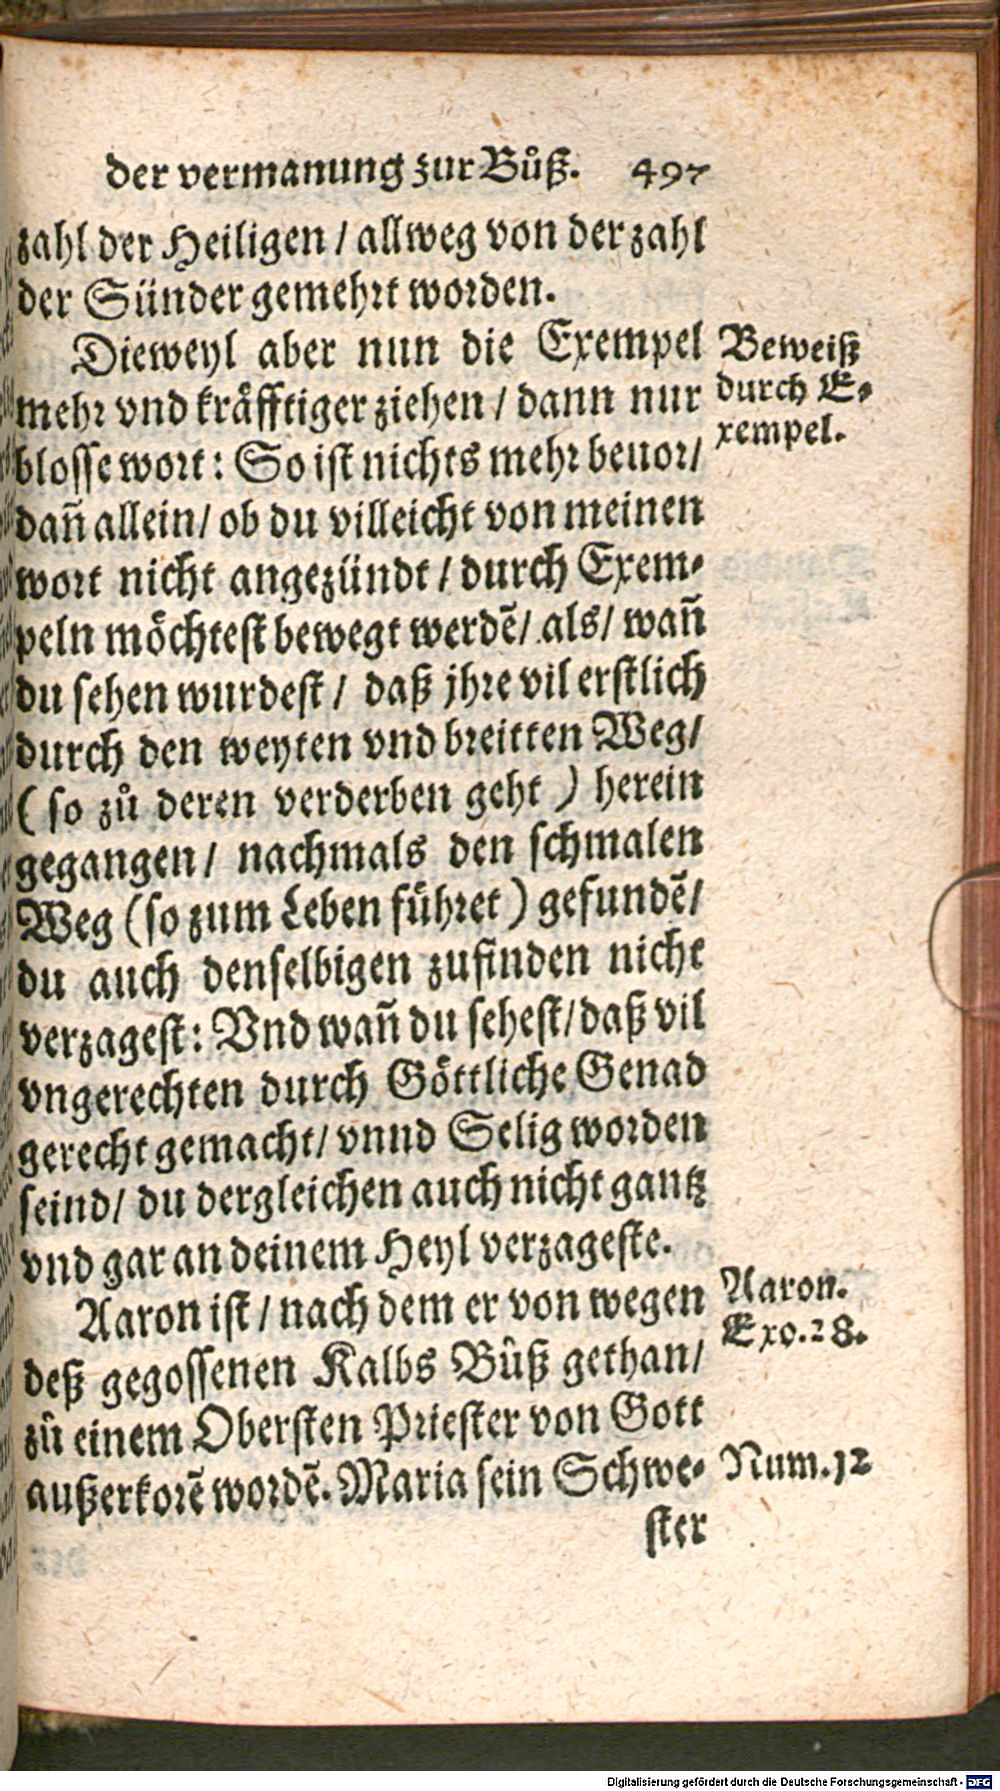 der vermanung zur Bůß. 497
zahl der Heiligen / allweg von der zahl
der Sünder gemehrt worden.
Dieweyl aber nun die Exempel
mehr vnd kräfftiger ziehen / dann nur
blosse wort: So ist nichts mehr beuor /
dañ allein / ob du villeicht von meinen
wort nicht angezündt / durch Exem⸗
peln möchtest bewegt werdē / als / wañ
du sehen wurdest / daß jhre vil erstlich
durch den weyten vnd breitten Weg /
( so zů deren verderben geht ) herein
gegangen / nachmals den schmalen
Weg (so zum Leben führet ) gefundē /
du auch denselbigen zufinden nicht
verzagest: Vnd wañ du sehest / daß vil
vngerechten durch Göttliche Genad
gerecht gemacht / vnnd Selig worden
seind / du dergleichen auch nicht gantz
vnd gar an deinem Heyl verzageste.
Aaron ist / nach dem er von wegen
deß gegossenen Kalbs Bůß gethan /
zů einem Obersten Priester von Gott
außerkorē wordē. Maria sein Schwe⸗
ster
Beweiß
durch E⸗
xempel.
Aaron.
Exo.28.
Num.12
Digitalisierung gefördert durch die Deutsche Forschungsgemeinschaft - DFG